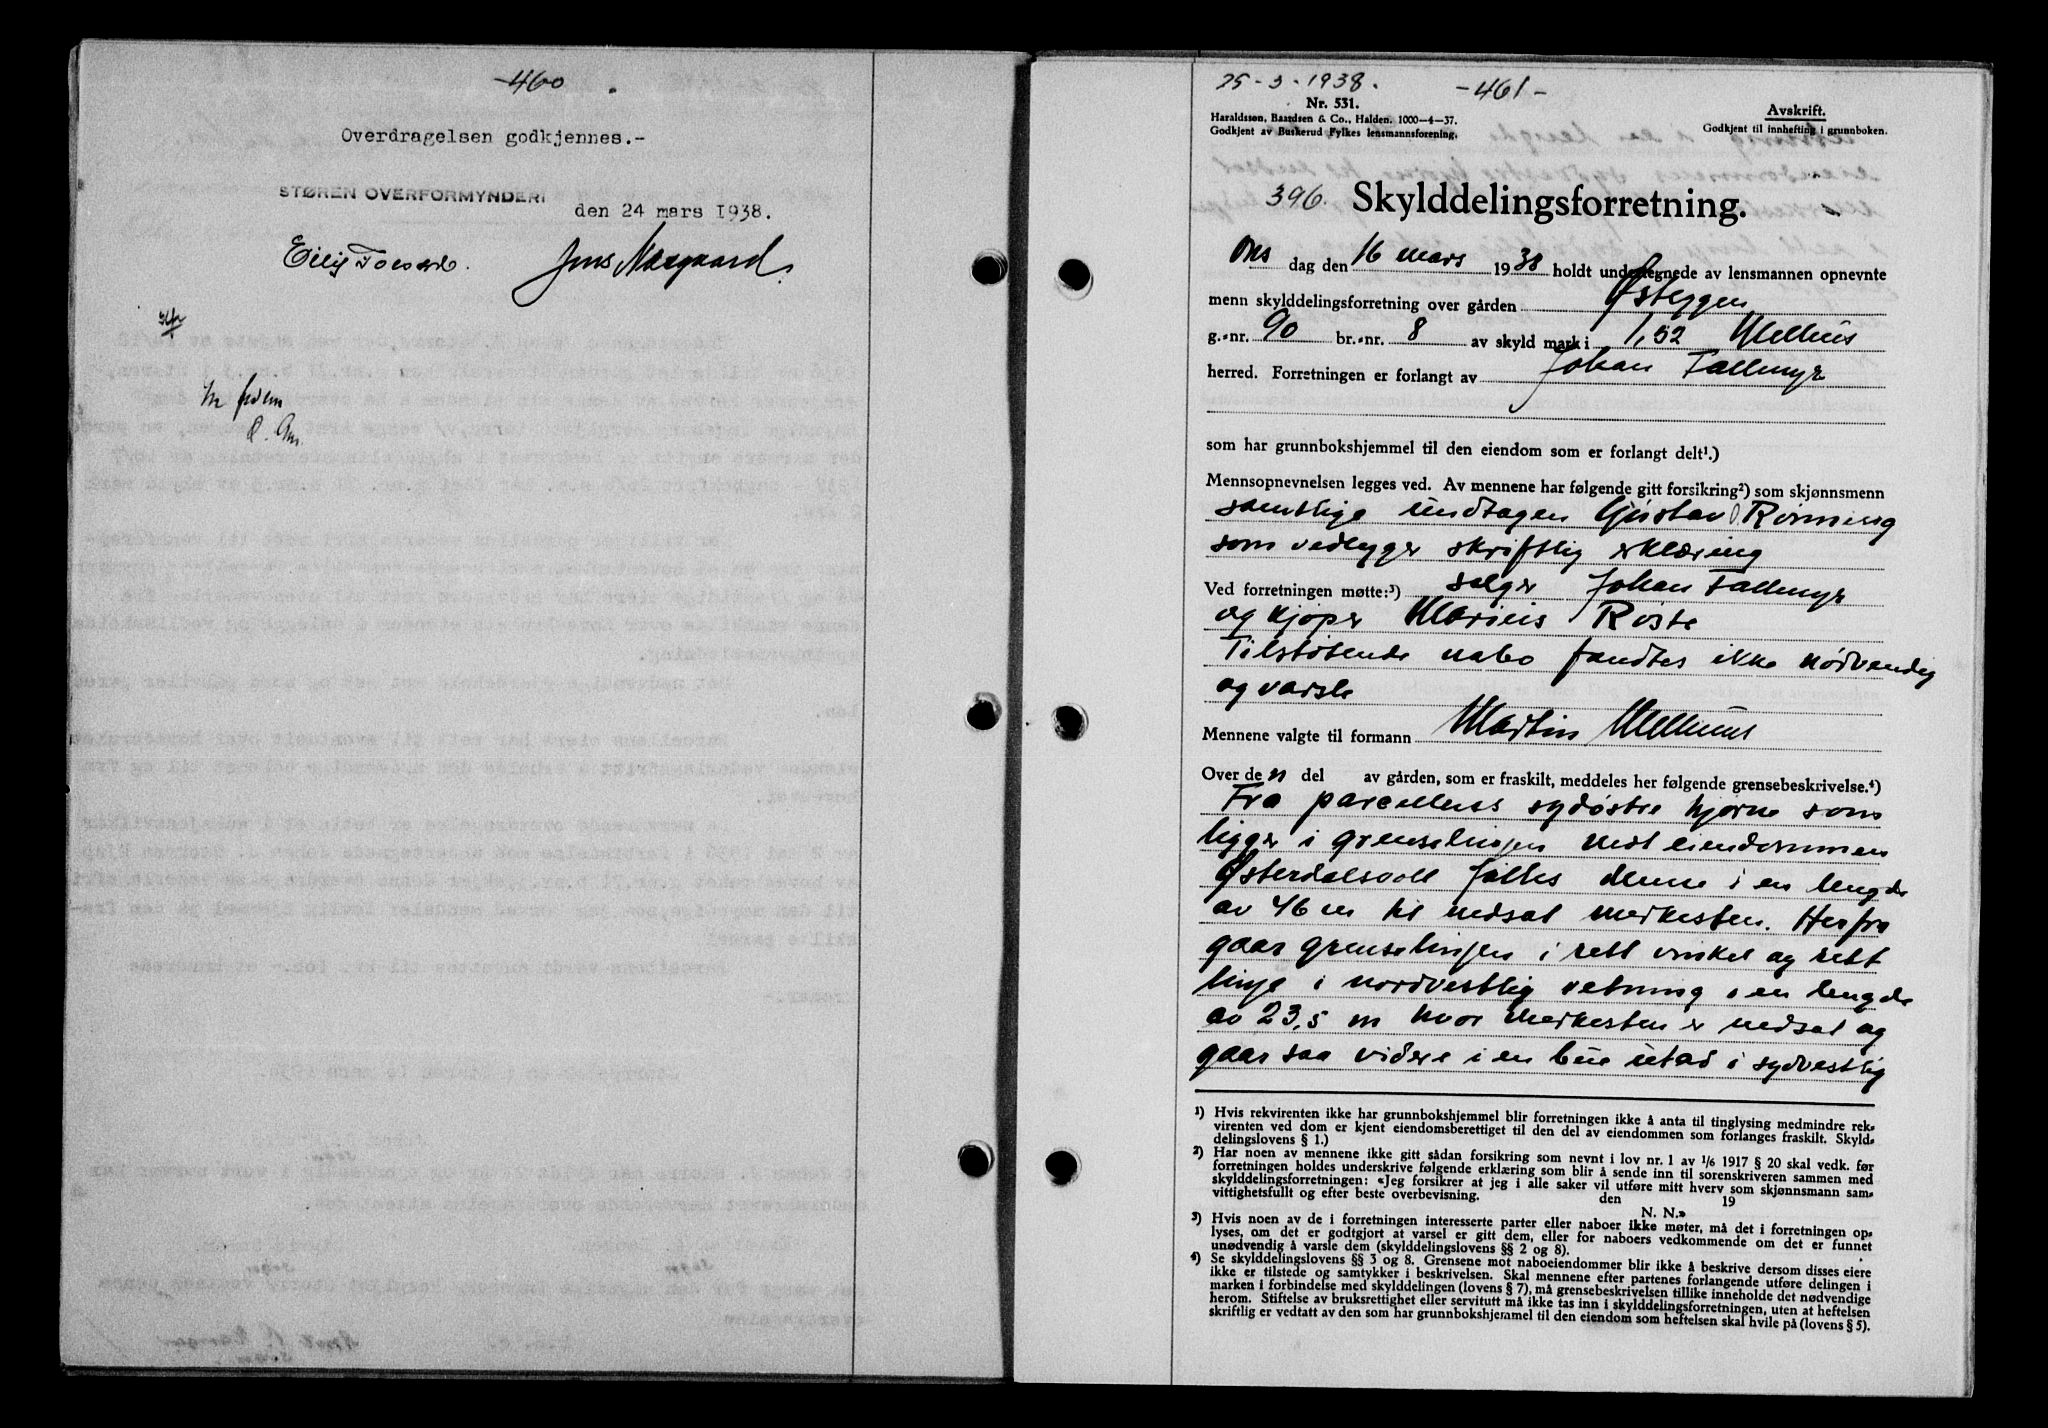 -460
Overdragelsen godkjennes.-
STØREN OVERFORMYNDERI
den 24 mars 1938.
Jens Næsgaard
25-3-1938.
-461-
Nr. 531.
Haraldssen, Baardsen & Co., Halden. 1000-4-37.
Godkjent av Buskerud Fylkes lensmannsforening.
Avskrift.
Godkjent til innhefting i grunnboken.
396. Skylddelingsforretning.
Ons dag den 16 mars 1938 holdt undertegnede av lensmannen opnevnte
menn skylddelingsforretning over gården Østeggen
g.-nr. 90 br.-nr. 8 av skyld mark i 1,52 Melhus
herred. Forretningen er forlangt av Johan Tallmyr
som har grunnbokshjemmel til den eiendom som er forlangt delt¹.)
Mennsopnevnelsen legges ved. Av mennene har følgende gitt forsikring²) som skjønnsmenn
samtlige undtagen Gustav Rønning
som vedlegger skriftlig erklæring
Ved forretningen møtte:³) selger Johan Tallmyr
og kjøper Marius Røste
Tilstøtende nabo fandtes ikke nødvendig
og varsle
Mennene valgte til formann Martin Melhuus
Over de n del av gården, som er fraskilt, meddeles her følgende grensebeskrivelse.⁴)
Fra parcellens sydøstre hjørne som
ligger i grenselinjen mot eiendommen
Østerdalsvoll føltes denne i en lengde
av 46 m til nedsat merkesten. Herfra
gaar grenselinjen i rett vinkel og rett
linje i nordvestlig retning i en lengde
av 23,5 m hvor merkesten er nedsat og
gaar saa videre i en bue utad i sydvestlig
¹) Hvis rekvirenten ikke har grunnbokshjemmel blir forretningen ikke å anta til tinglysing medmindre rek-
virenten ved dom er kjent eiendomsberettiget til den del av eiendommen som forlanges fraskilt. Skyld-
delingslovens § 1.)
²) Har noen av mennene ikke gitt sådan forsikring som nevnt i lov nr. 1 av 1/6 1917 § 20 skal vedk. før
forretningen holdes underskrive følgende erklæring som blir å sende inn til sorenskriveren sammen med
skylddelingsforretningen: «Jeg forsikrer at jeg i alle saker vil utføre mitt hverv som skjønnsmann sam-
vittighetsfullt og efter beste overbevisning. den 19
N. N.»
³) Hvis noen av de i forretningen interesserte parter eller naboer ikke møter, må det i forretningen op-
lyses, om det er godtgjort at varsel er gitt dem, eller for naboers vedkommende om det er funnet
unødvendig å varsle dem (skylddelingslovens §§ 2 og 8).
⁴) Se skylddelingslovens §§ 3 og 8. Grensene mot naboeiendommer blir ikke å beskrive dersom disses eiere
ikke er tilstede og samtykker i beskrivelsen. Skal mennene efter partenes forlangende utføre delingen i
marken i forbindelse med skylddelingen (lovens § 7), må grensebeskrivelsen tillike inneholde det nødvendige
herom. Stiftelse av bruksrettighet eller servitutt må ikke tas inn i skylddelingsforretningen, uten at heftelsen
skriftlig er vedtatt av den som har grunnbokshjemmel til den eiendom som heftelsen skal hvile på (lovens § 5).